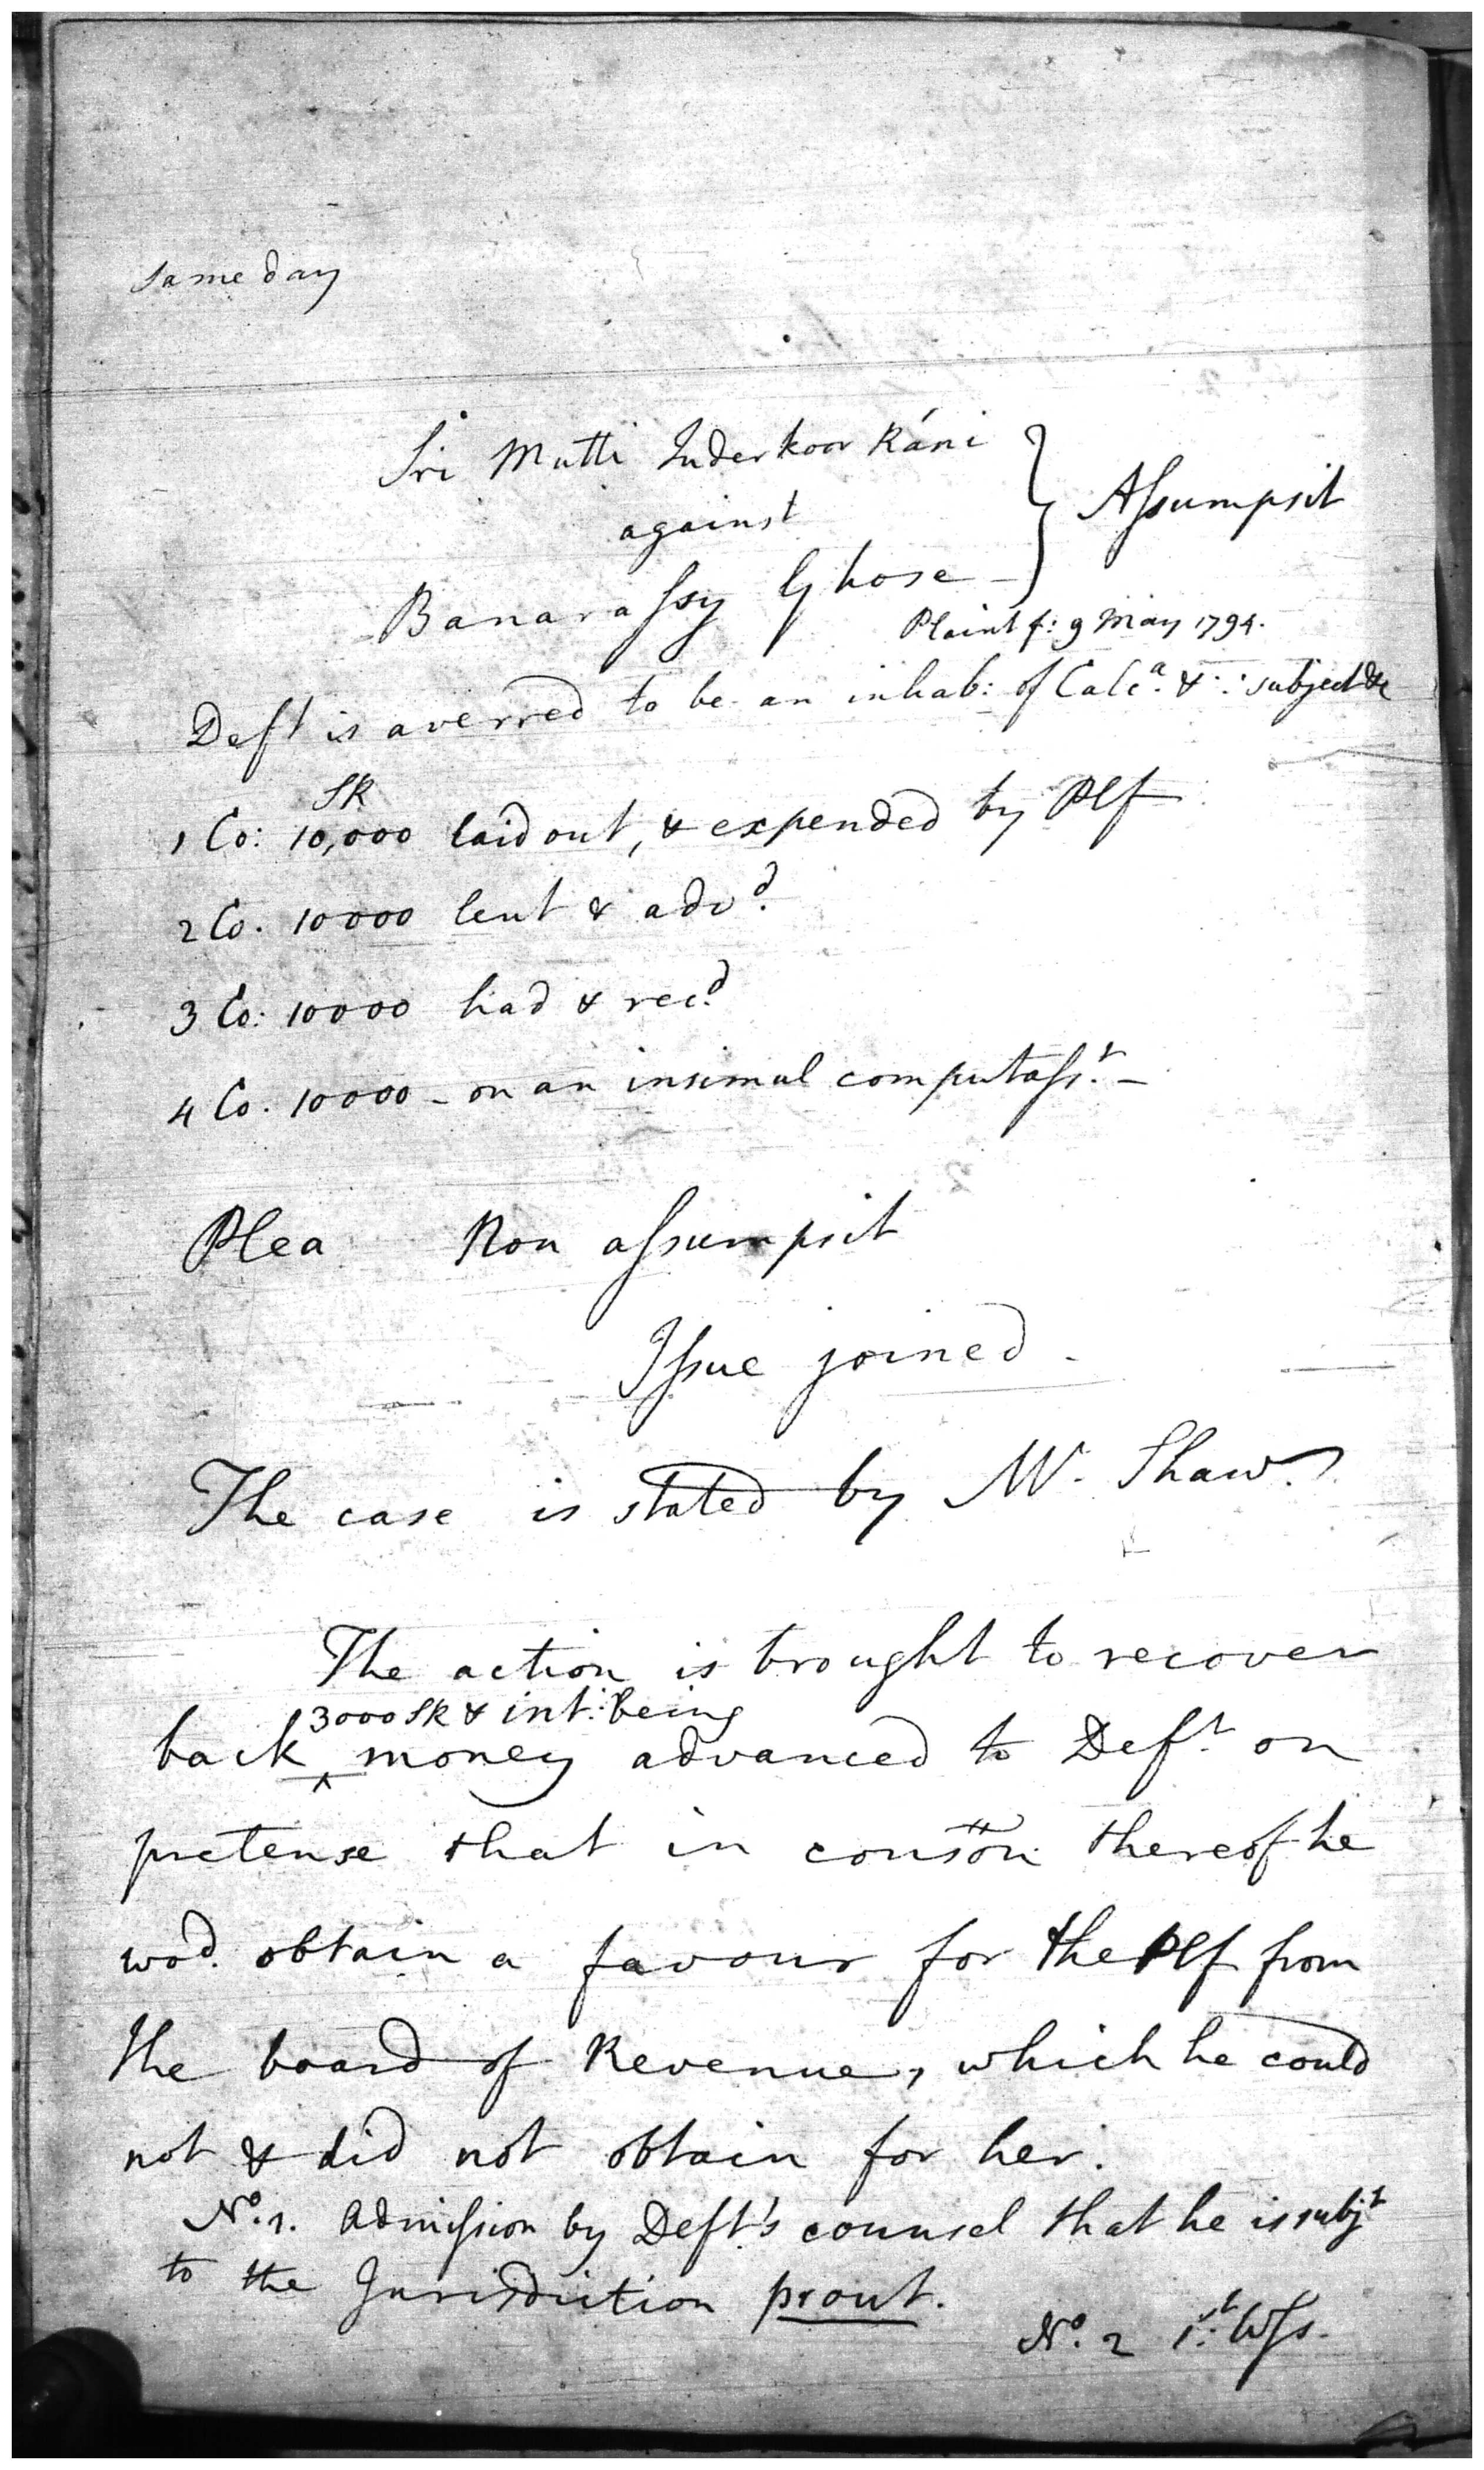 same day
Sri Mutti Inderkoor Ráni
against
Banarassy Ghose
} Assumpsit
Plaint f: 9 May 1794.
Deft is averred to be an inhab: of Calcᵃ. & ∴ subject &c
SR
1 Co: 10,000 laid out, & expended by Plf
2 Co. 10000 lent & advᵈ.
3 Co: 10000 had & recᵈ.
4 Co. 10000 - on an insimul computassᵗ. -
Plea Non assumpsit
Issue joined.
The case is stated by Mʳ. Shaw.
The action is brought to recover
3000 SR & int: being
back ‸ money advanced to Defᵗ. on
pretense that in consōn thereof he
woᵈ. obtain a favour for the Plf from
the board of Revenue, which he could
not & did not obtain for her.
Nᵒ. 1. Admission by Deft's counsel that he is subjᵗ
to the Jurisdiction prout.
Nᵒ. 2 1ˢᵗ. Wss.